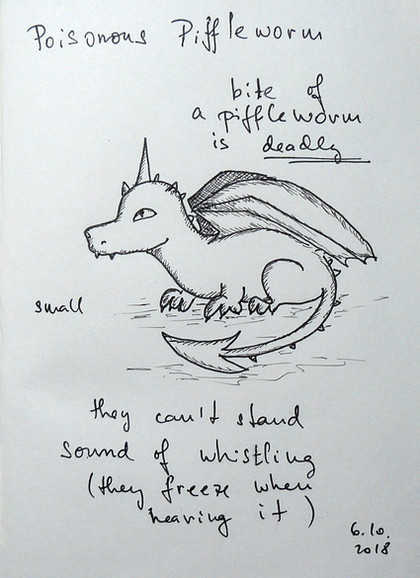 Poisonous Piffleworm
bite of
a piffleworm
is deadly
small
they can't stand
sound of whistling
(they freeze when
hearing it)
6.10.
2018